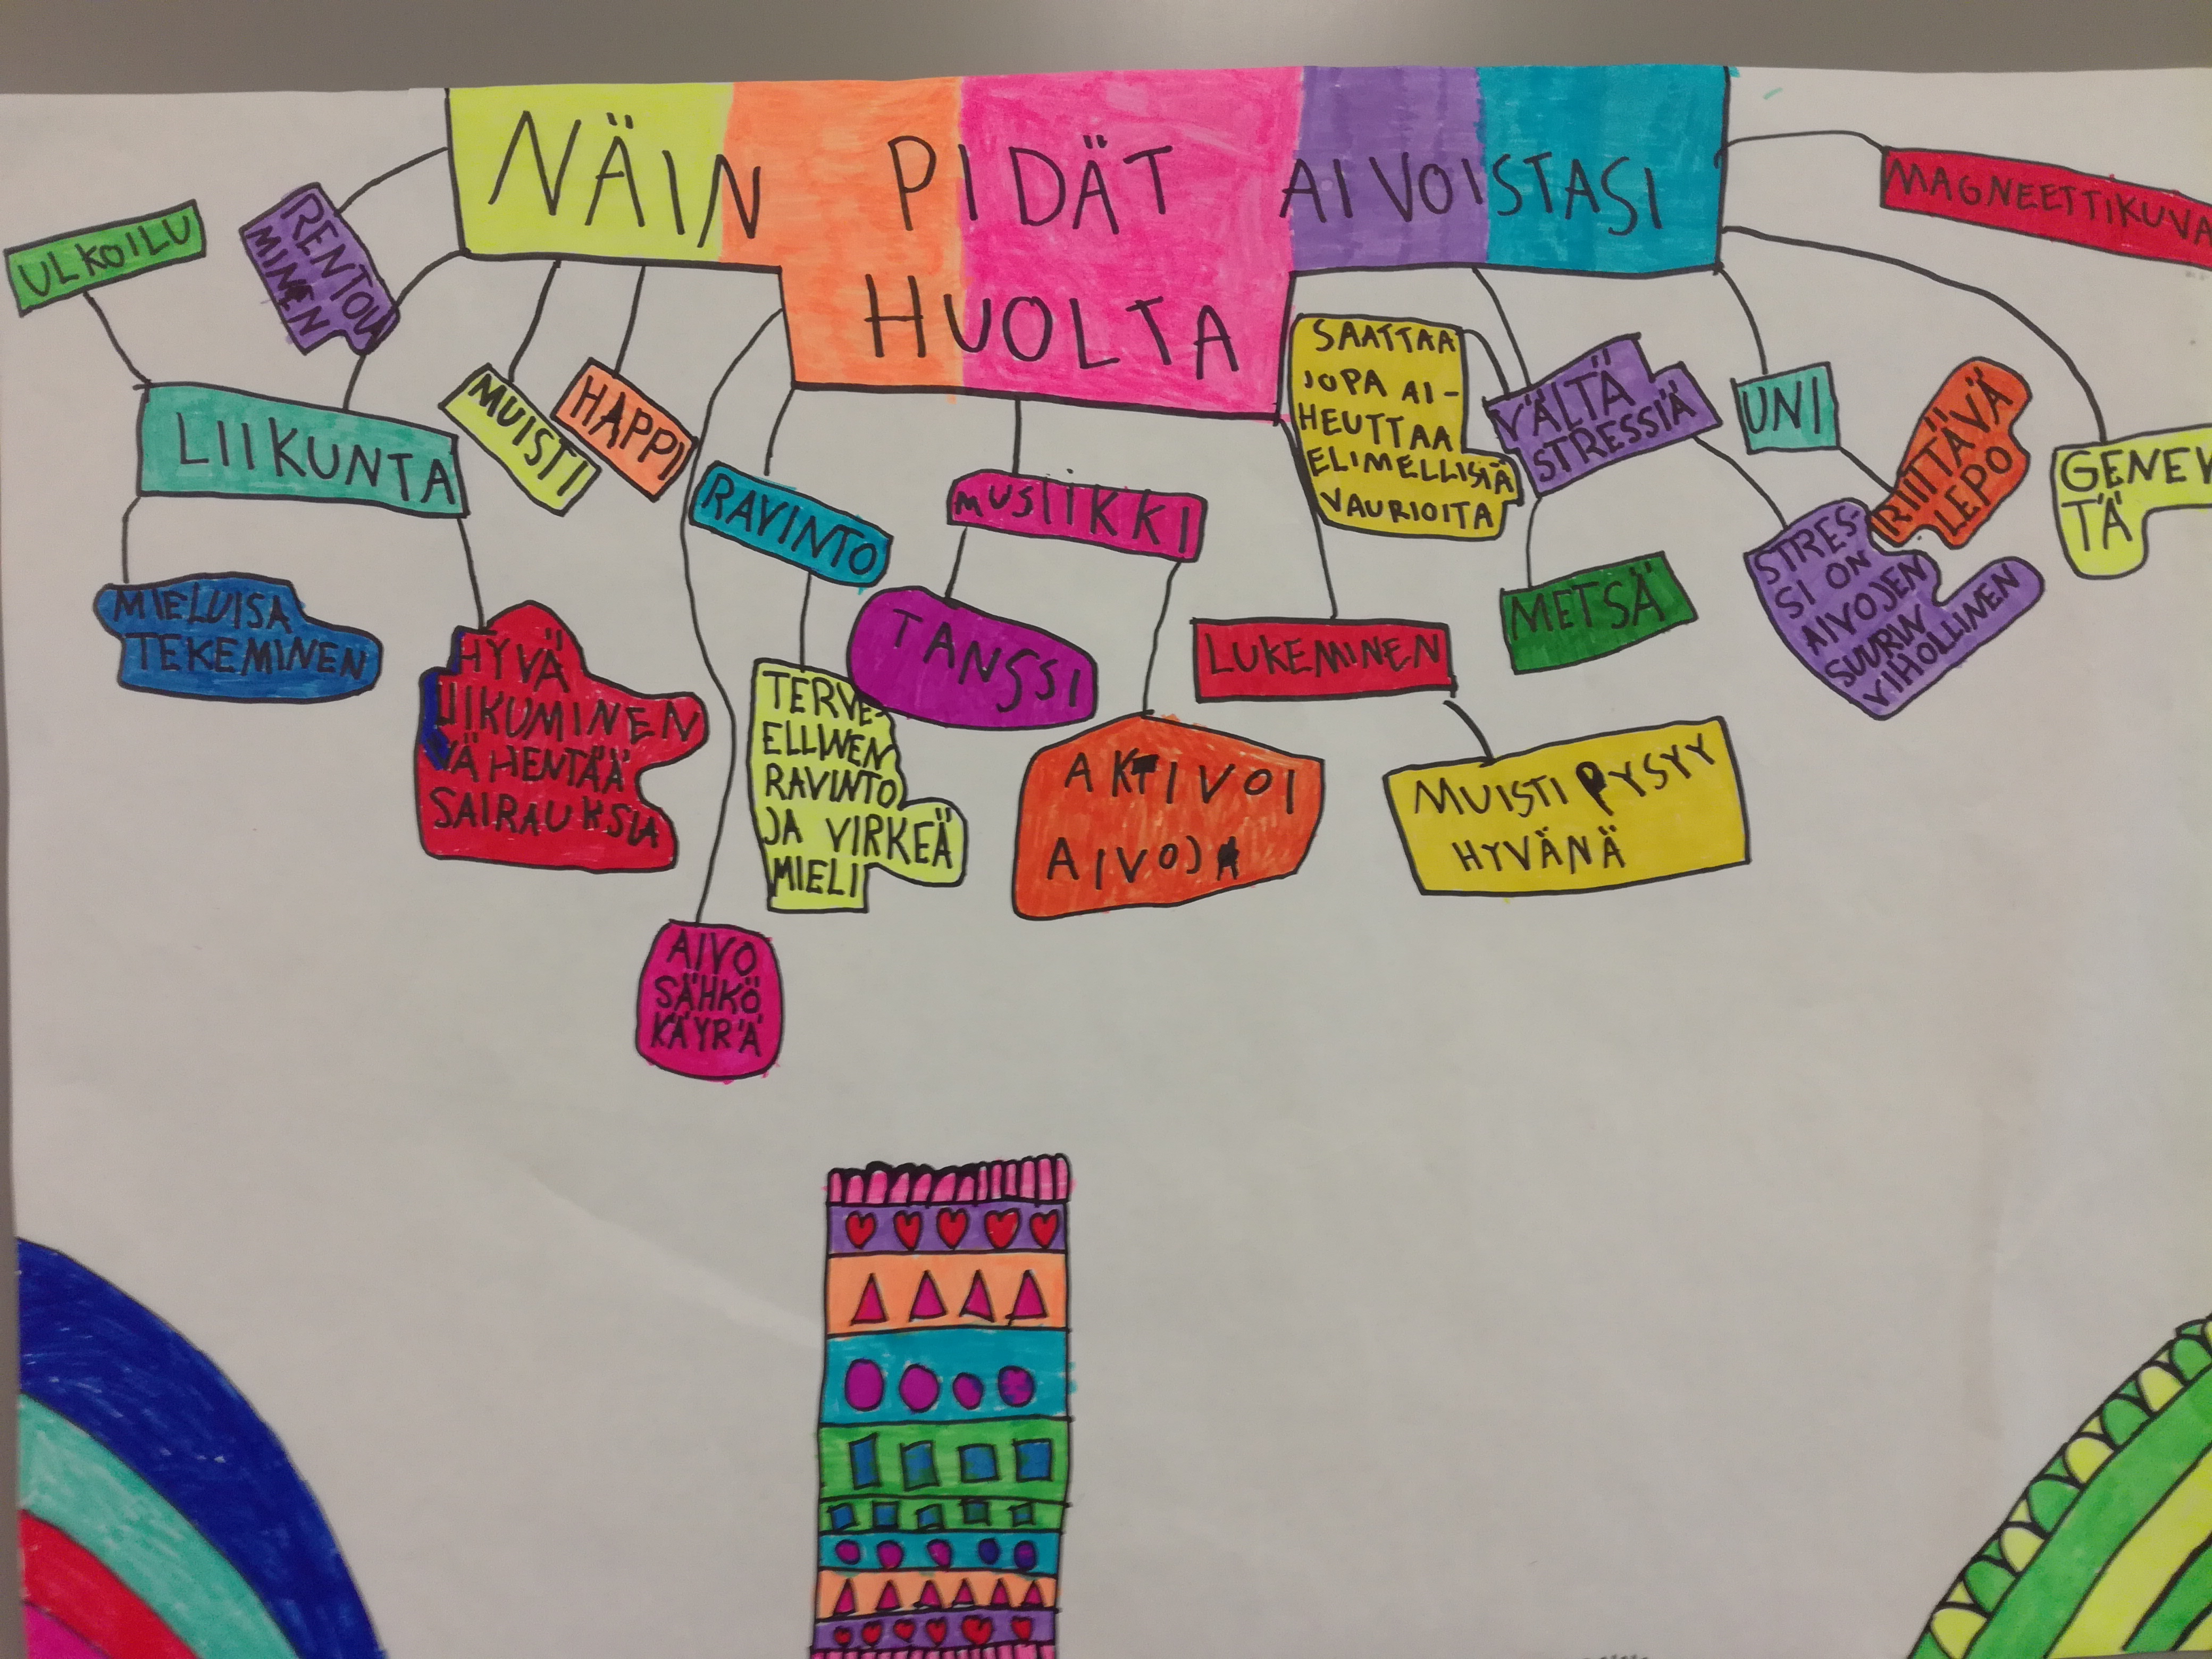 NÄIN PIDÄT AIVOISTASI
HUOLTA
MAGNEETTIKUVA
ULKOILU
RENTOU
MINEN
LIIKUNTA
MIELUISA
TEKEMINEN
HYVÄ
LIIKUMINEN
VÄHENTÄÄ
SAIRAUKSIA
MUISTI
HAPPI
AIVO
SÄHKÖ
KÄYRÄ
RAVINTO
TERVE-
ELLINEN
RAVINTO
JA VIRKEÄ
MIELI
MUSIIKKI
TANSSI
AKTIVOI
AIVOJA
LUKEMINEN
MUISTI PYSYY
HYVÄNÄ
SAATTAA
JOPA AI-
HEUTTAA
ELIMELLISIÄ
VAURIOITA
VÄLTÄ
STRESSIÄ
METSÄ
STRES-
SI ON
AIVOJEN
SUURIN
VIHOLLINEN
UNI
RIITTÄVÄ
LEPO
GENEV
TÄ